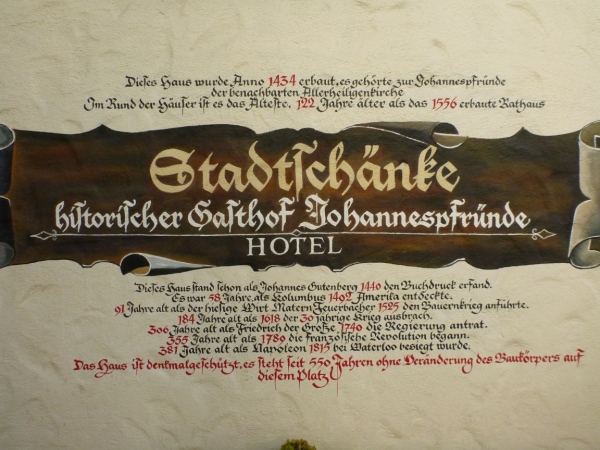 Dieses Haus wurde Anno 1434 erbaut, es gehörte zur Johannespfründe
der benachbarten Allerheiligenkirche
Im Rund der Häuser ist es das Älteste, 122 Jahre älter als das 1556 erbaute Rathaus
Stadtschänke
historischer Gasthof Johannespfründe
HOTEL
Dieses Haus stand schon als Johannes Gutenberg 1440 den Buchdruck erfand.
Es war 58 Jahre, als Kolumbus 1492 Amerika entdeckte.
91 Jahre alt als der hiesige Wirt Matern Feuerbacher 1525 den Bauernkrieg anführte.
184 Jahre alt als 1618 der 30 jährige Krieg ausbrach.
306 Jahre alt als Friedrich der Große 1740 die Regierung antrat.
355 Jahre alt als 1789 die französische Revolution begann.
381 Jahre alt als Napoleon 1815 bei Waterloo besiegt wurde.
Das Haus ist denkmalgeschützt, es steht seit 550 Jahren ohne Veränderung des Baukörpers auf
diesem Platz